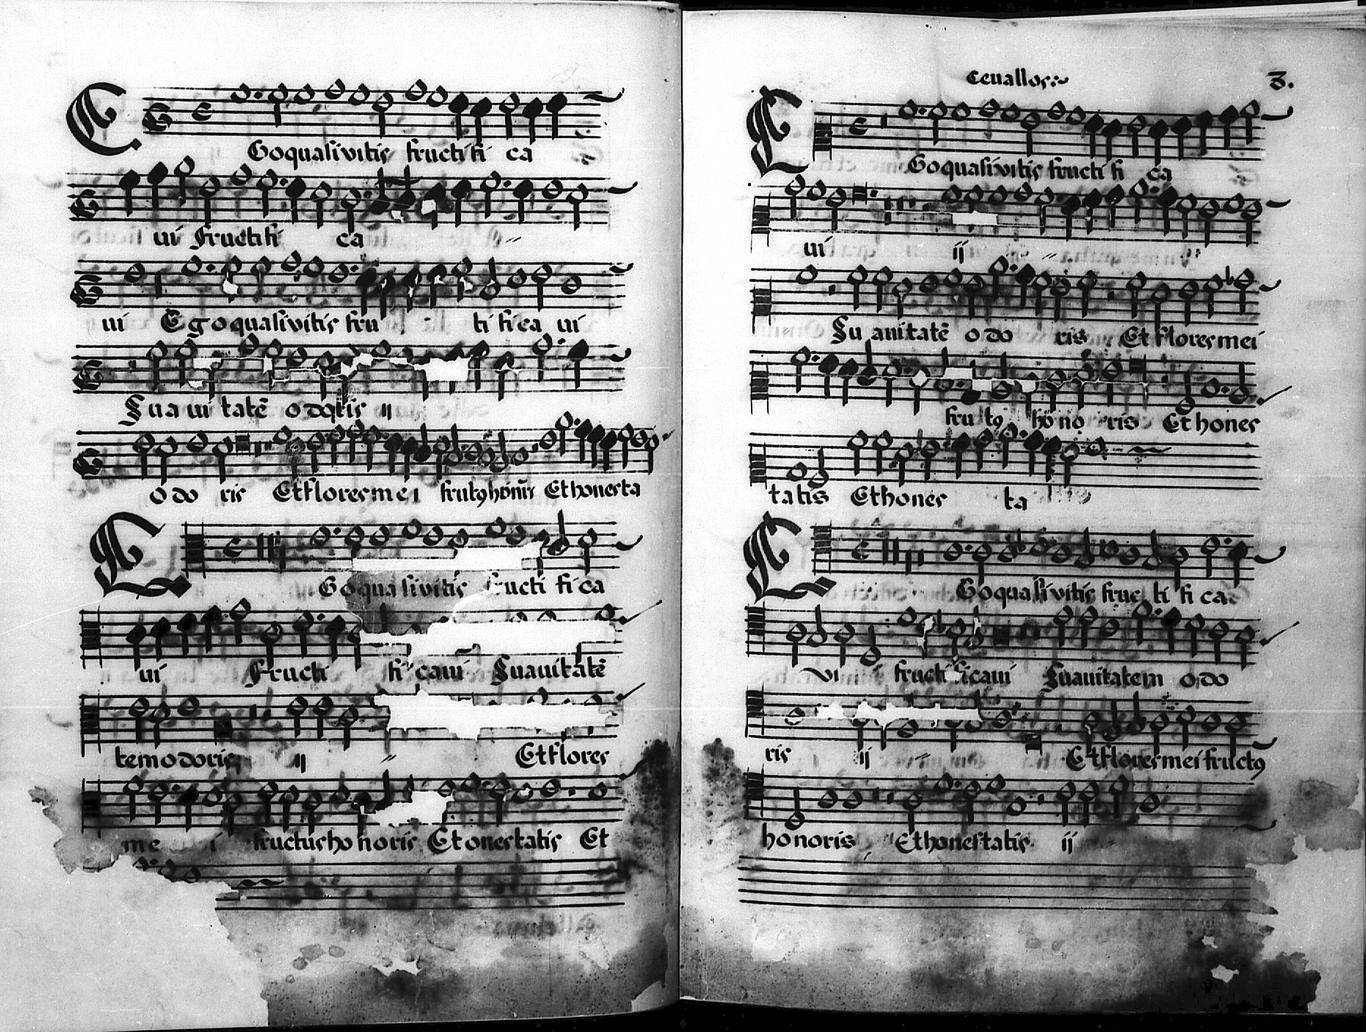 Egoquasivitis fructifi ca
vi Fructifi ca
vi Egoquasivitis fru ti fica vi
Suavi tatē odoris ij
odo ris Etfloresmei frutꝰhōnris Ethonesta
Egoquasivitis fructi fi ca
vi Fructi ficavi Suauitatē
temodoris ij Etflores
me i fructushonoris Etonestatis Et
Ceuallos
3.
Egoquasivitis fructi fi ca
vi ij
Su auitatē odo ris Etfloresmei
frutꝰ hōno ris Ethones
tatis Ethones ta
Egoquasivitis fruc ti fi ca
vi fructificavi Suauitatem odo
ris ij Etfloresmeifructꝰ
honoris Ethonestatis ij